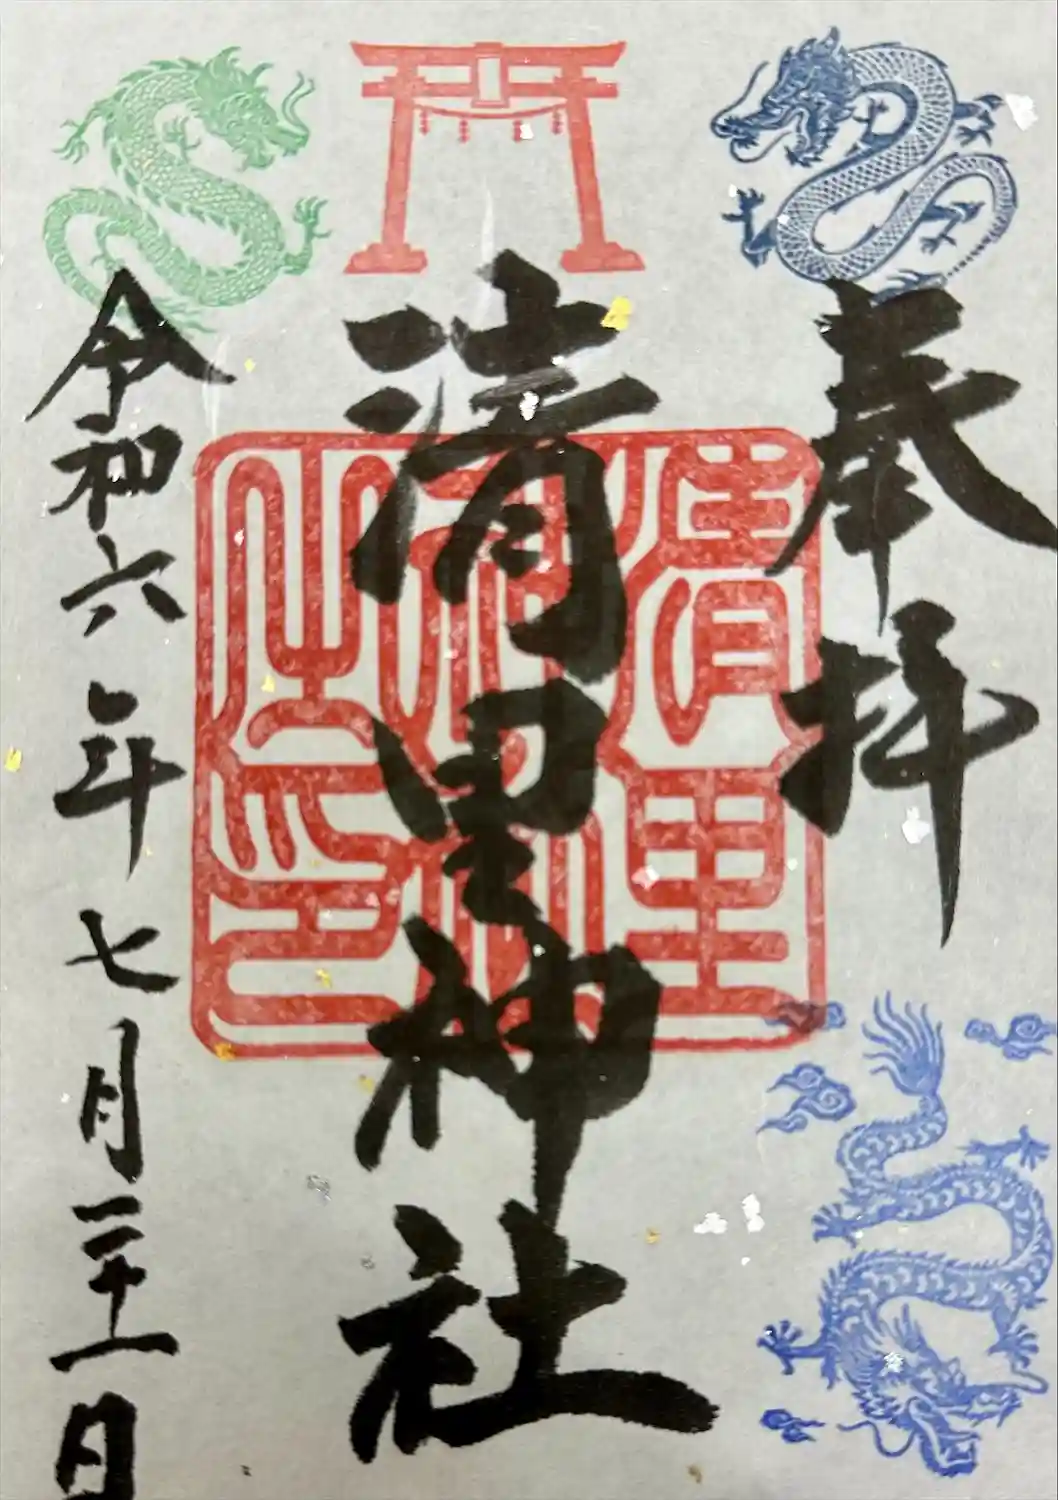 奉拝
清里神社
令和六年七月二十一日
清里
神社
之印